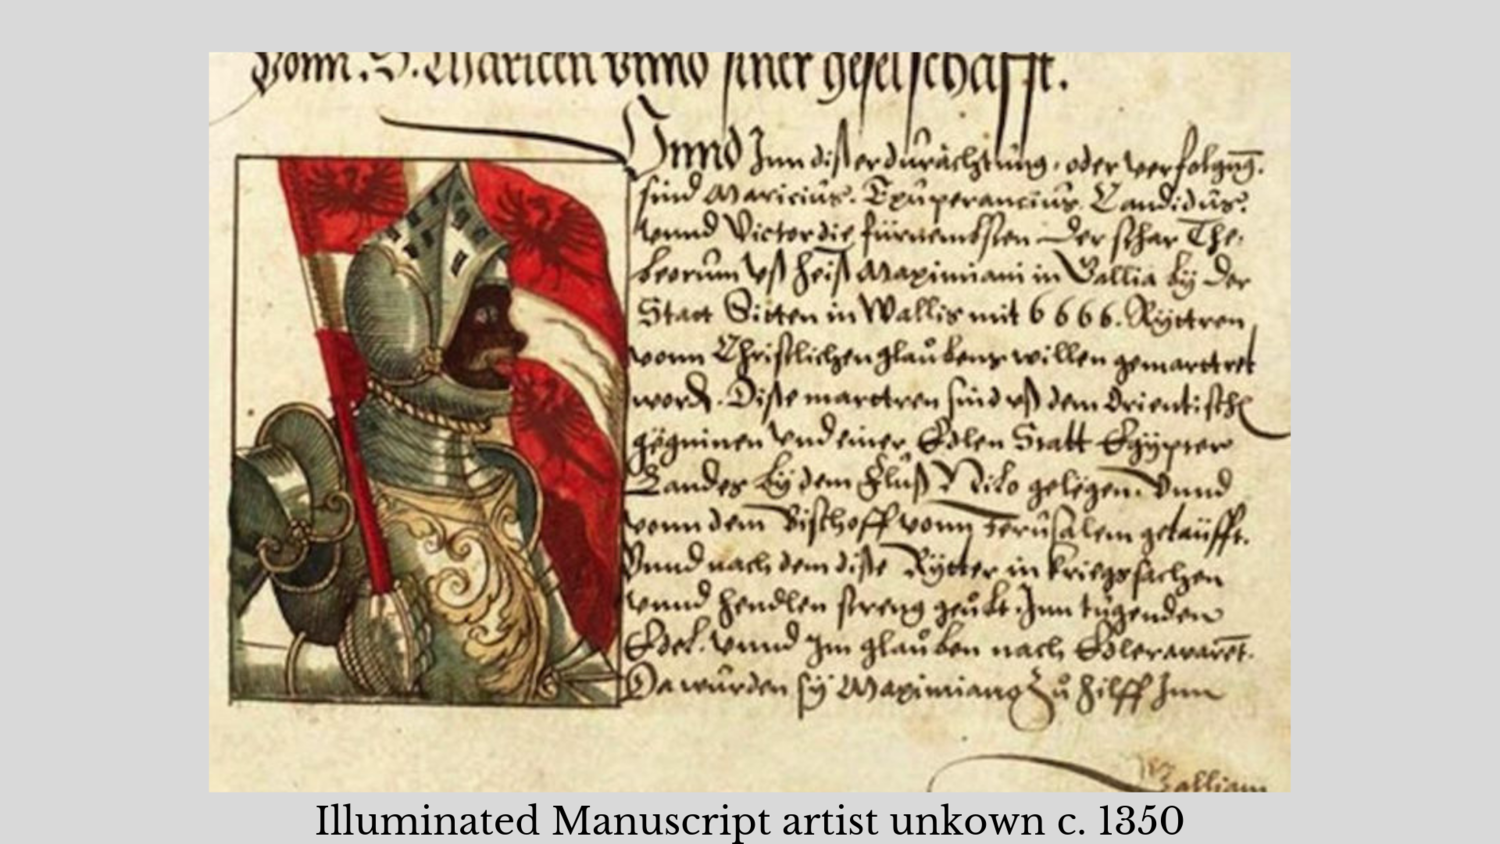 Vonn. S. Maricen vnnd siner geselschafft.
Vnnd Inn disser durächtung, oder verfolgūg.
sind Maricius. Exuperancius. Candidus.
vnnd Victor die fürnembsten der schar The,
beorum vß heiß Maximiani in Vallia by der
Statt Sitten in Wallis mit 6666. Ryttren
vonn Christlichen glaubens willen gemarttret
word. Disse marttren sind vß dem Orientisch
gegninen vnd einer Edlen Statt Egypter
Landes by dem Fluß Nilo gelegen. Vnnd
vonn dem Bischoff vonn Jerusalem getäufft.
Vnnd nach dem disse Rytter in kriegs sachen
vnnd hendlen streng geübt. Inn tugenden
Edel. vnnd Im glauben nach
Da wurden sy Maximiano zu hilff Inn
Galliam
Illuminated Manuscript artist unkown c. 1350